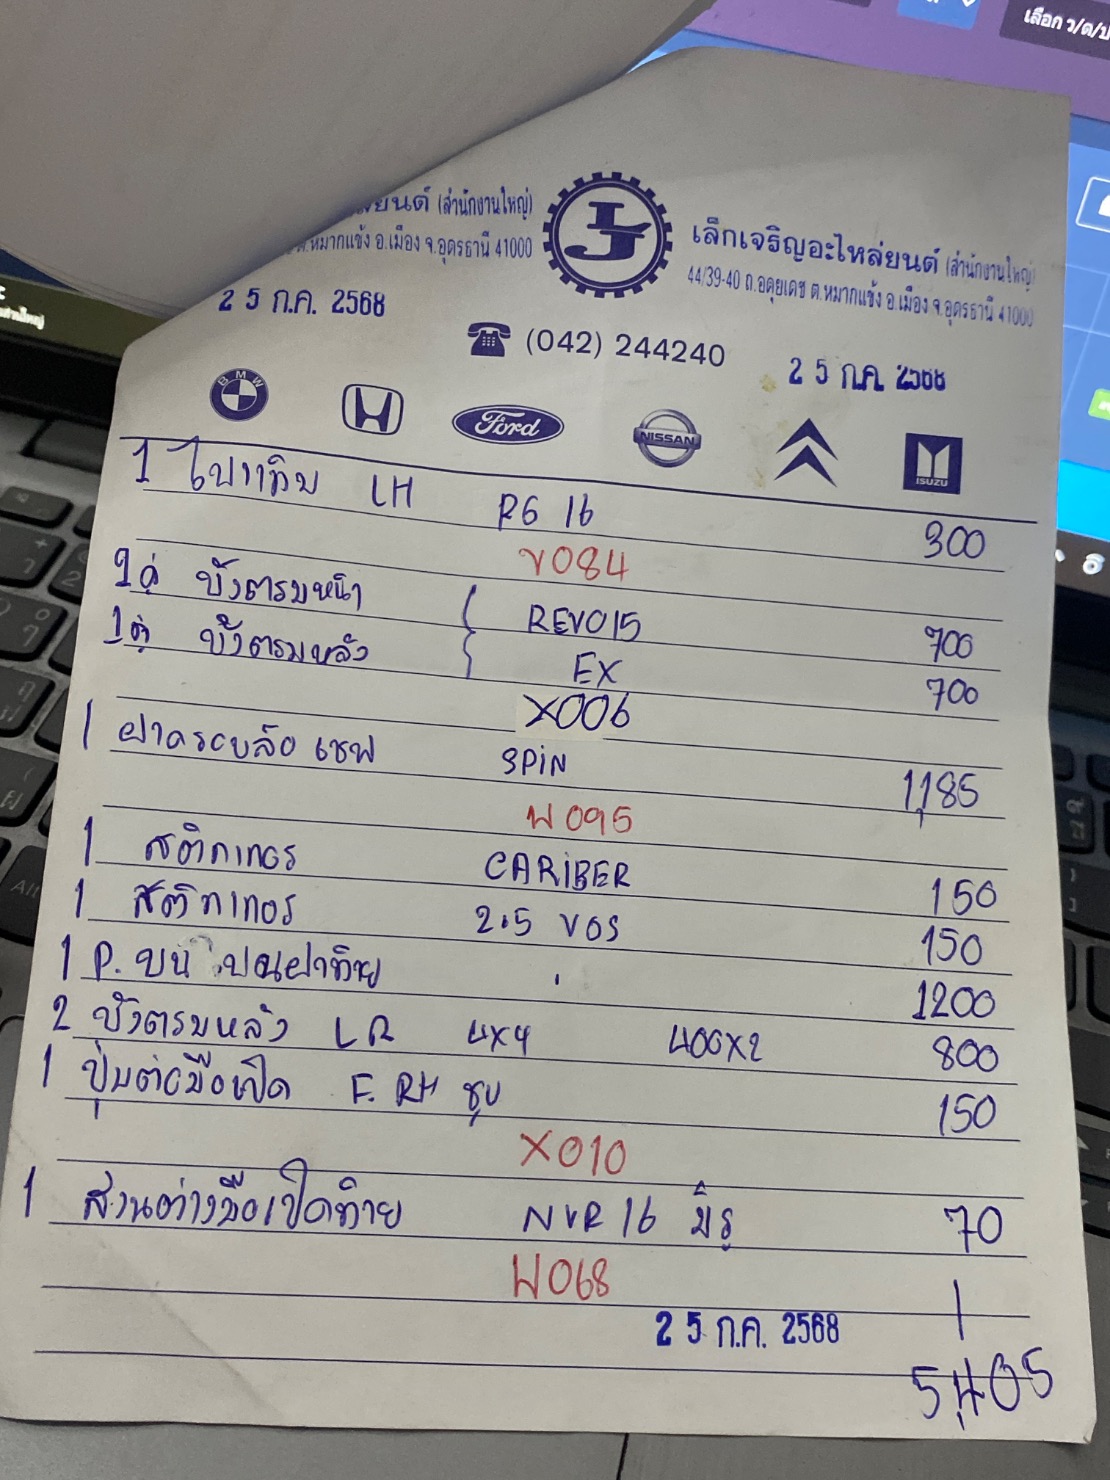 เลือก ว/ด/ป
ยนต์ (สำนักงานใหญ่)
ต.หมากแข้ง อ.เมือง จ.อุดรธานี 41000
LJ
เล็กเจริญอะไหล่ยนต์ (สำนักงานใหญ่)
44/39-40 ถ.อดุยเดช ต.หมากแข้ง อ.เมือง จ.อุดรธานี 41000
2 5 ก.ค. 2568
(042) 244240
2 5 ก.ค. 2568
BMW Ford NISSAN ISUZU
1 ไฟแก้ม LH R6 16 300
V084
1คู่ บังตรมหน้า REVO15 700
1คู่ บังตรมหลัง EX 700
X006
1 ฝาครอบล้อ เชฟ SPiN 1,185
W095
1 สติกเกอร์ CARiBER 150
1 สติกเกอร์ 2.5 VGS 150
1 P. บน ฝาท้าย 1200
2 บังตรมหลัง LR 4x4 400x2 800
1 ปุ่มต่อมือเปิด F. RH ชุบ 150
X010
1 มือเปิดท้าย NVR 16 มิรู 70
W068
2 5 ก.ค. 2568
5,405